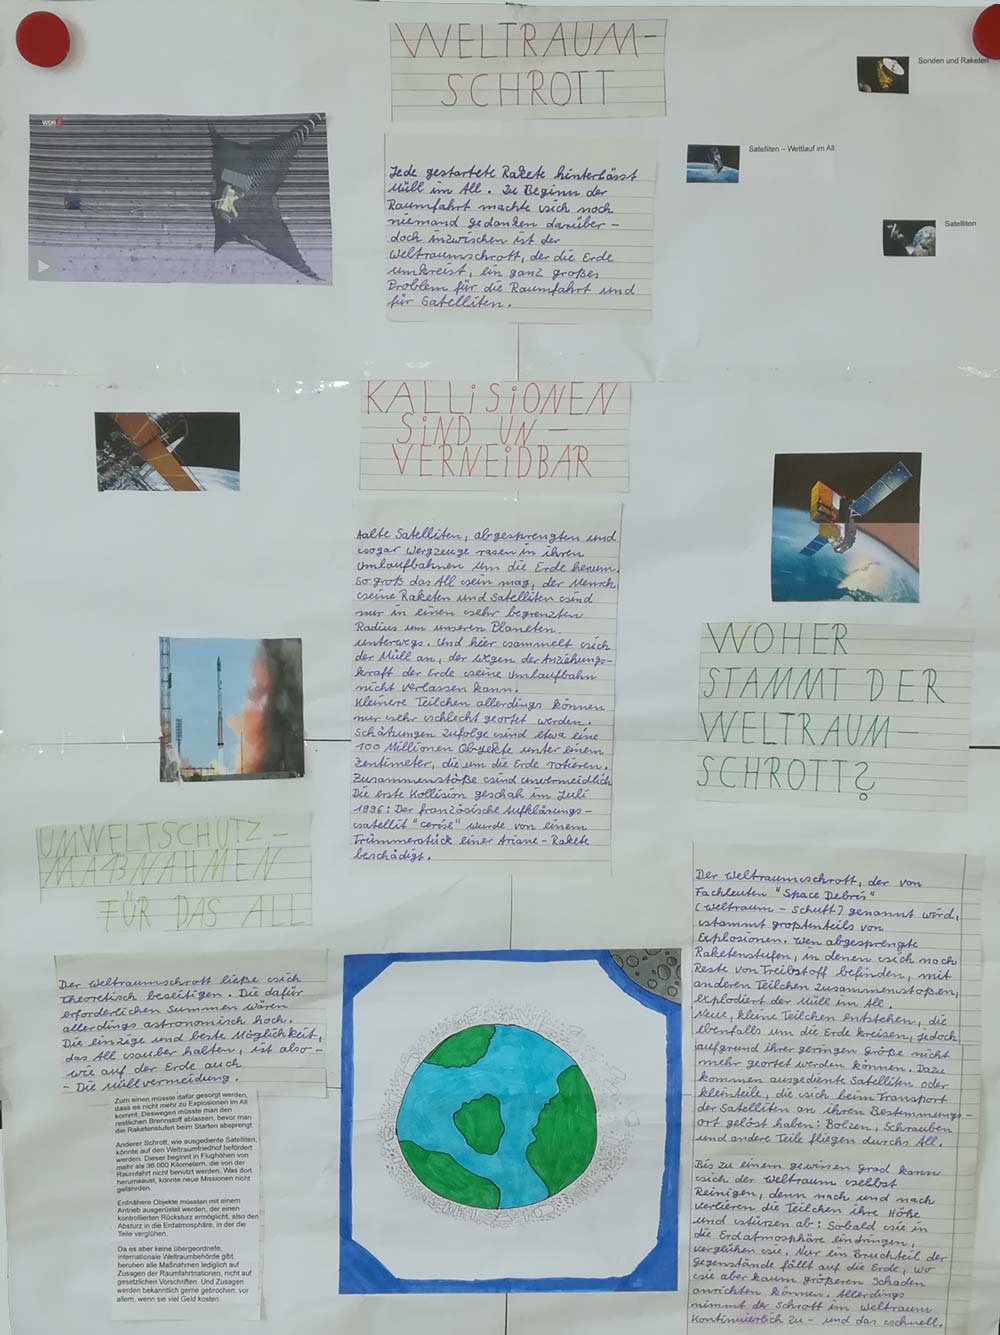 WELTRAUM-
SCHROTT
wdr
Sonden und Raketen
Satelliten – Wettlauf im All
Satelliten
Jede gestartete Rakete hinterlässt
Müll im All. Zu Beginn der
Raumfahrt machte sich noch
niemand gedanken darüber –
doch inzwischen ist der
Weltraumschrott, der die Erde
umkreist, ein ganz großes
Problem für die Raumfahrt und
für Satelliten.
KALLiSiONEN
SiND UN –
VERNEiDBAR
Aalte Satelliten, abgesprengten und
sogar Wergzeuge rasen in ihren
Umlaufbahnen um die Erde herum.
So groß das All sein mag, der Mensch
seine Raketen und Satelliten sind
nur in einen sehr begrenzten
Radius um unseren Planeten
unterwegs. Und hier sammelt sich
der Müll an, der wegen der Anziehungs-
kraft der Erde seine Umlaufbahn
nicht verlassen kann.
Kleinere Teilchen allerdings können
nur sehr schlecht geortet werden.
Schätzungen zufolge sind etwa eine
100 Millionen Objekte unter einem
Zentimeter, die um die Erde rotieren.
Zusammenstöße sind unvermeidlich
Die erste Kollision geschah im Juli
1996: Der französische Aufklärungs-
satellit "cerise" wurde von einem
Trümmerstück einer Ariane-Rakete
beschädigt.
WOHER
STAMMT DER
WELTRAUM
SCHROTT?
Der Weltraumschrott, der von
Fachleuten "Space Debris"
(Weltraum – Schutt) genannt wird,
stammt großtenteils von
Explosionen. Wen abgesprengte
Raketenstufen, in denen sich noch
Reste von Treibstoff befinden, mit
anderen Teilchen zusammenstoßen,
explodiert der Müll im All.
Neue, kleine Teilchen entstehen, die
ebenfalls um die Erde kreisen, jedoch
aufgrund ihrer geringen Größe nicht
mehr geortet werden können. Dazu
kommen ausgediente Satelliten oder
kleinteile, die sich beim Transport
der Satelliten an ihren Bestemmungs-
ort gelöst haben: Bolzen, Schrauben
und andere Teile fliegen durchs All.
Bis zu einem gewissen Grad kann
sich der Weltraum selbst
Reinigen, denn nach und nach
verlieren die Teilchen ihre Höhe
und stürzen ab: Sobald sie in
die Erdatmosphäre eindringen,
verglühen sie. Nur ein Bruchteil der
Gegenstände fällt auf die Erde, wo
sie aber kaum größeren Schaden
anrichten können. Allerdings
nimmt der Schrott im Weltraum
Kontinuierlich zu – und das schnell.
UMWELTSCHUTZ –
MAßNAHMEN
FÜR DAS ALL
Der Weltraumschrott ließe sich
theoretisch beseitigen. Die dafür
erforderlichen Summen wären
allerdings astronomisch hoch.
Die einzige und beste Möglichkeit,
das All sauber halten, ist also –
wie auf der Erde auch
– Die Müllvermeidung.
Zum einen müsste dafür gesorgt werden,
dass es nicht mehr zu Explosionen im All
kommt. Deswegen müsste man den
restlichen Brennstoff ablassen, bevor man
die Raketenstufen beim Starten absprengt
Anderer Schrott, wie ausgediente Satelliten,
könnte auf den Weltraumfriedhof befördert
werden. Dieser beginnt in Flughöhen von
mehr als 36.000 Kilometern, die von der
Raumfahrt nicht benutzt werden. Was dort
herumsaust, könnte neue Missionen nicht
gefährden.
Erdnähere Objekte müssten mit einem
Antrieb ausgerüstet werden, der einen
kontrollierten Rücksturz ermöglicht, also den
Absturz in die Erdatmosphäre, in der die
Teile verglühen.
Da es aber keine übergeordnete,
internationale Weltraumbehörde gibt,
beruhen alle Maßnahmen lediglich auf
Zusagen der Raumfahrtnationen, nicht auf
gesetzlichen Vorschriften. Und Zusagen
werden bekanntlich gerne gebrochen, vor
allem, wenn sie viel Geld kosten.